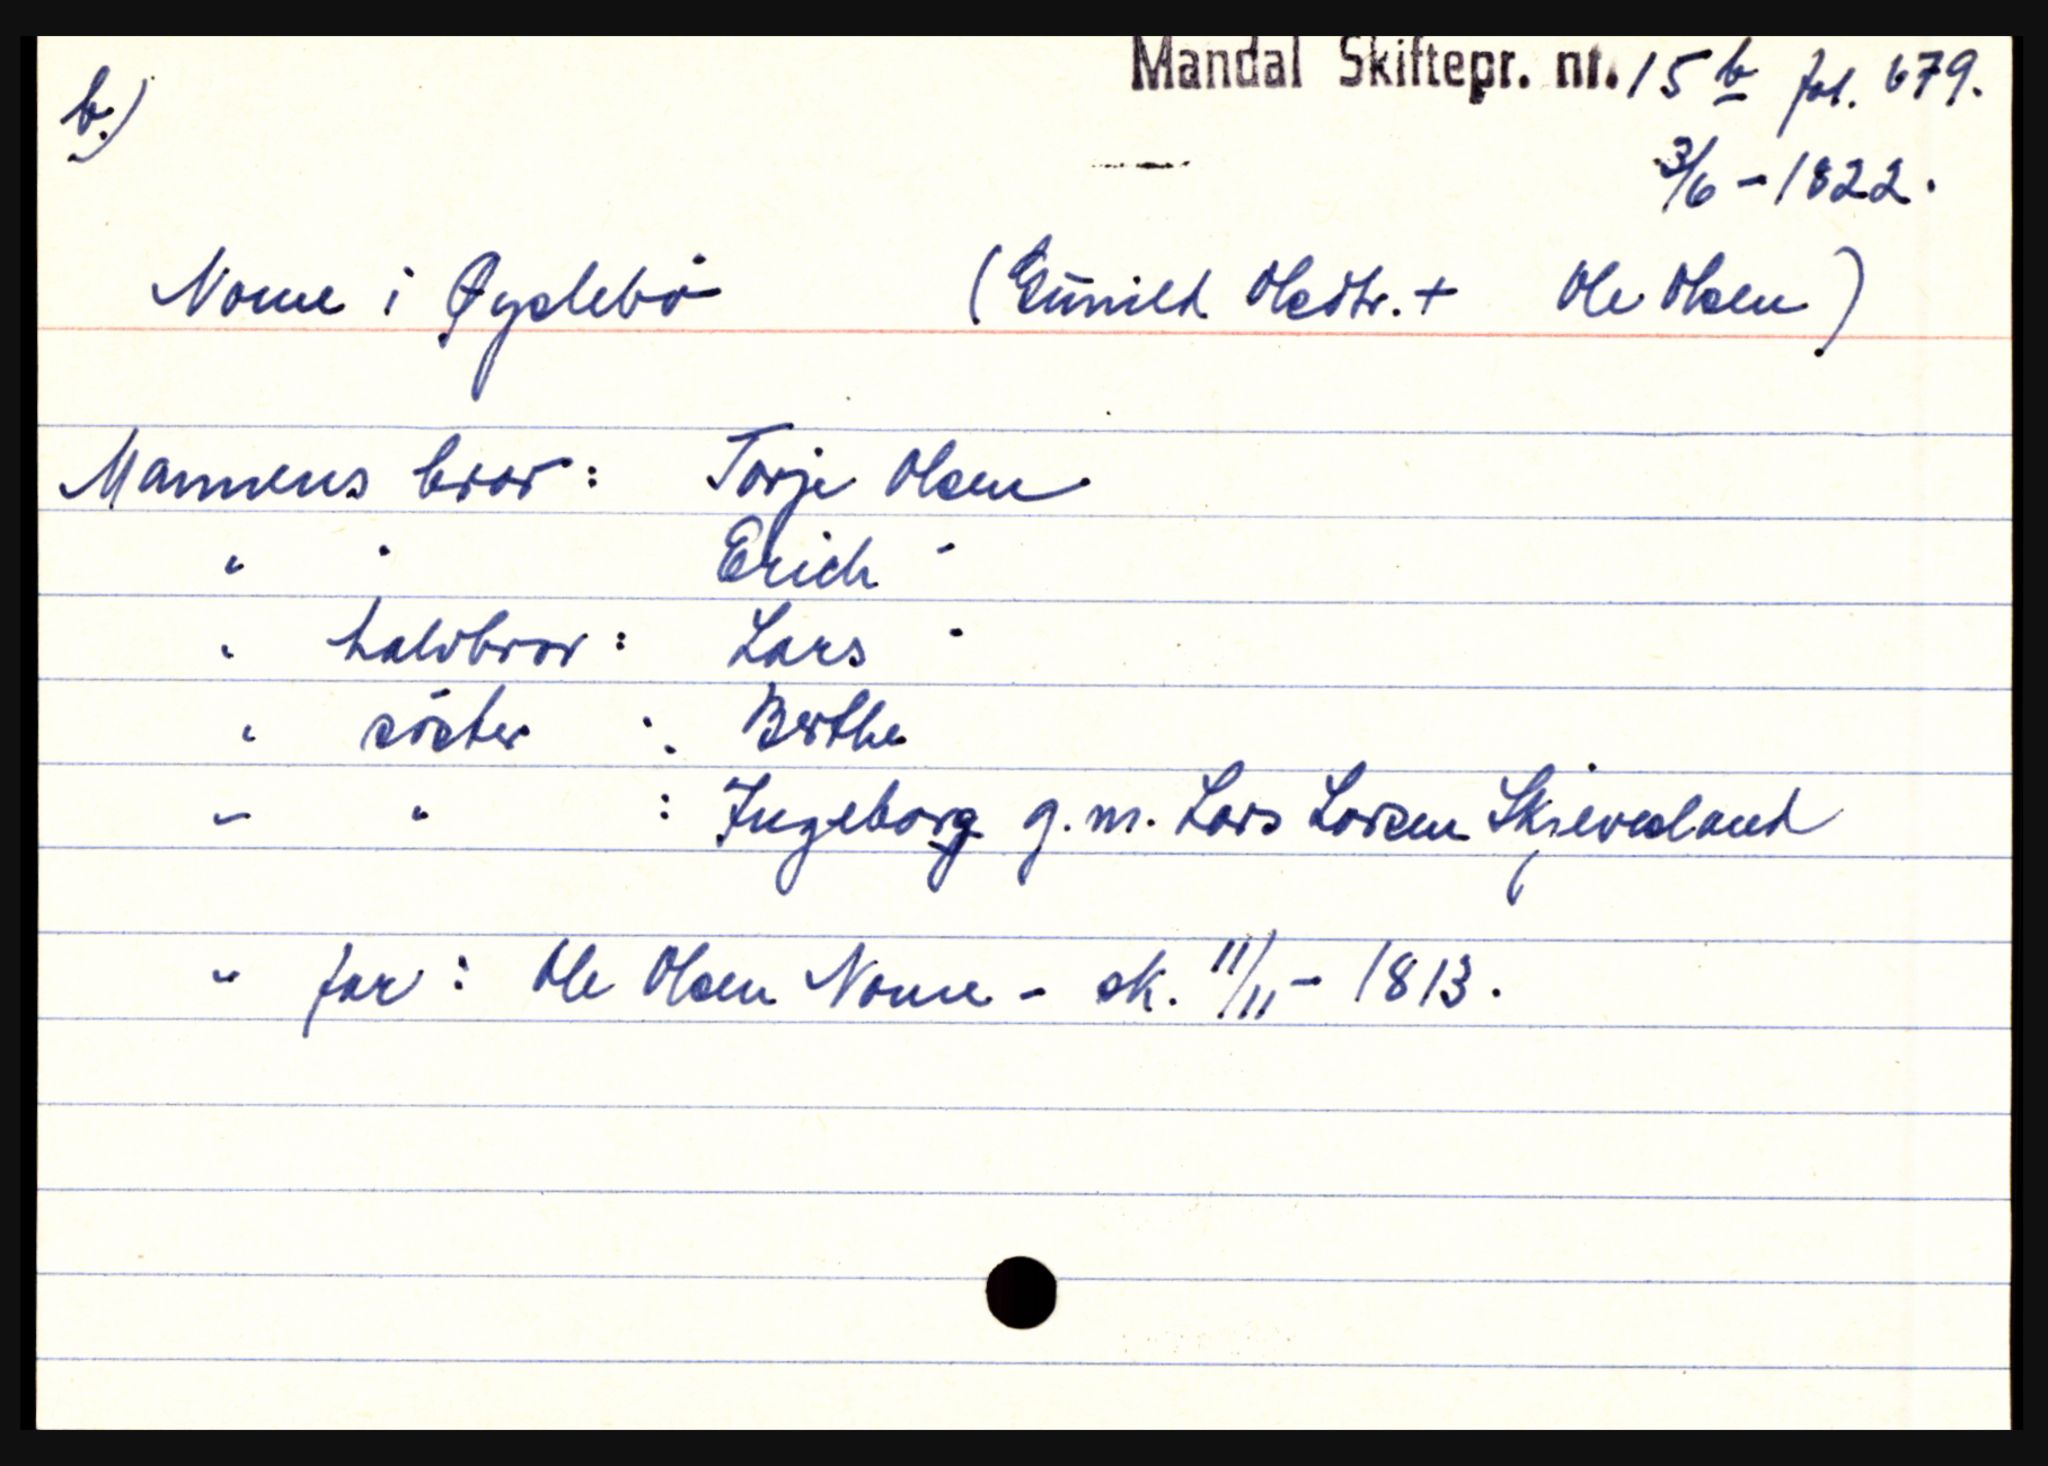 b.) Mandal Skiftepr. nr. 15 b fol. 679.
3/6 - 1822.
Nome i Øyslebö (Gunild Olsdtr. + Ole Olsen)
Mannens bror : Torje Olsen
" " Erich "
" halvbror : Lars "
" söster : Berthe
" " : Ingeborg g.m. Lars Larsen Skjevesland
" far : Ole Olsen Nome - sk. 11/11 - 1813.